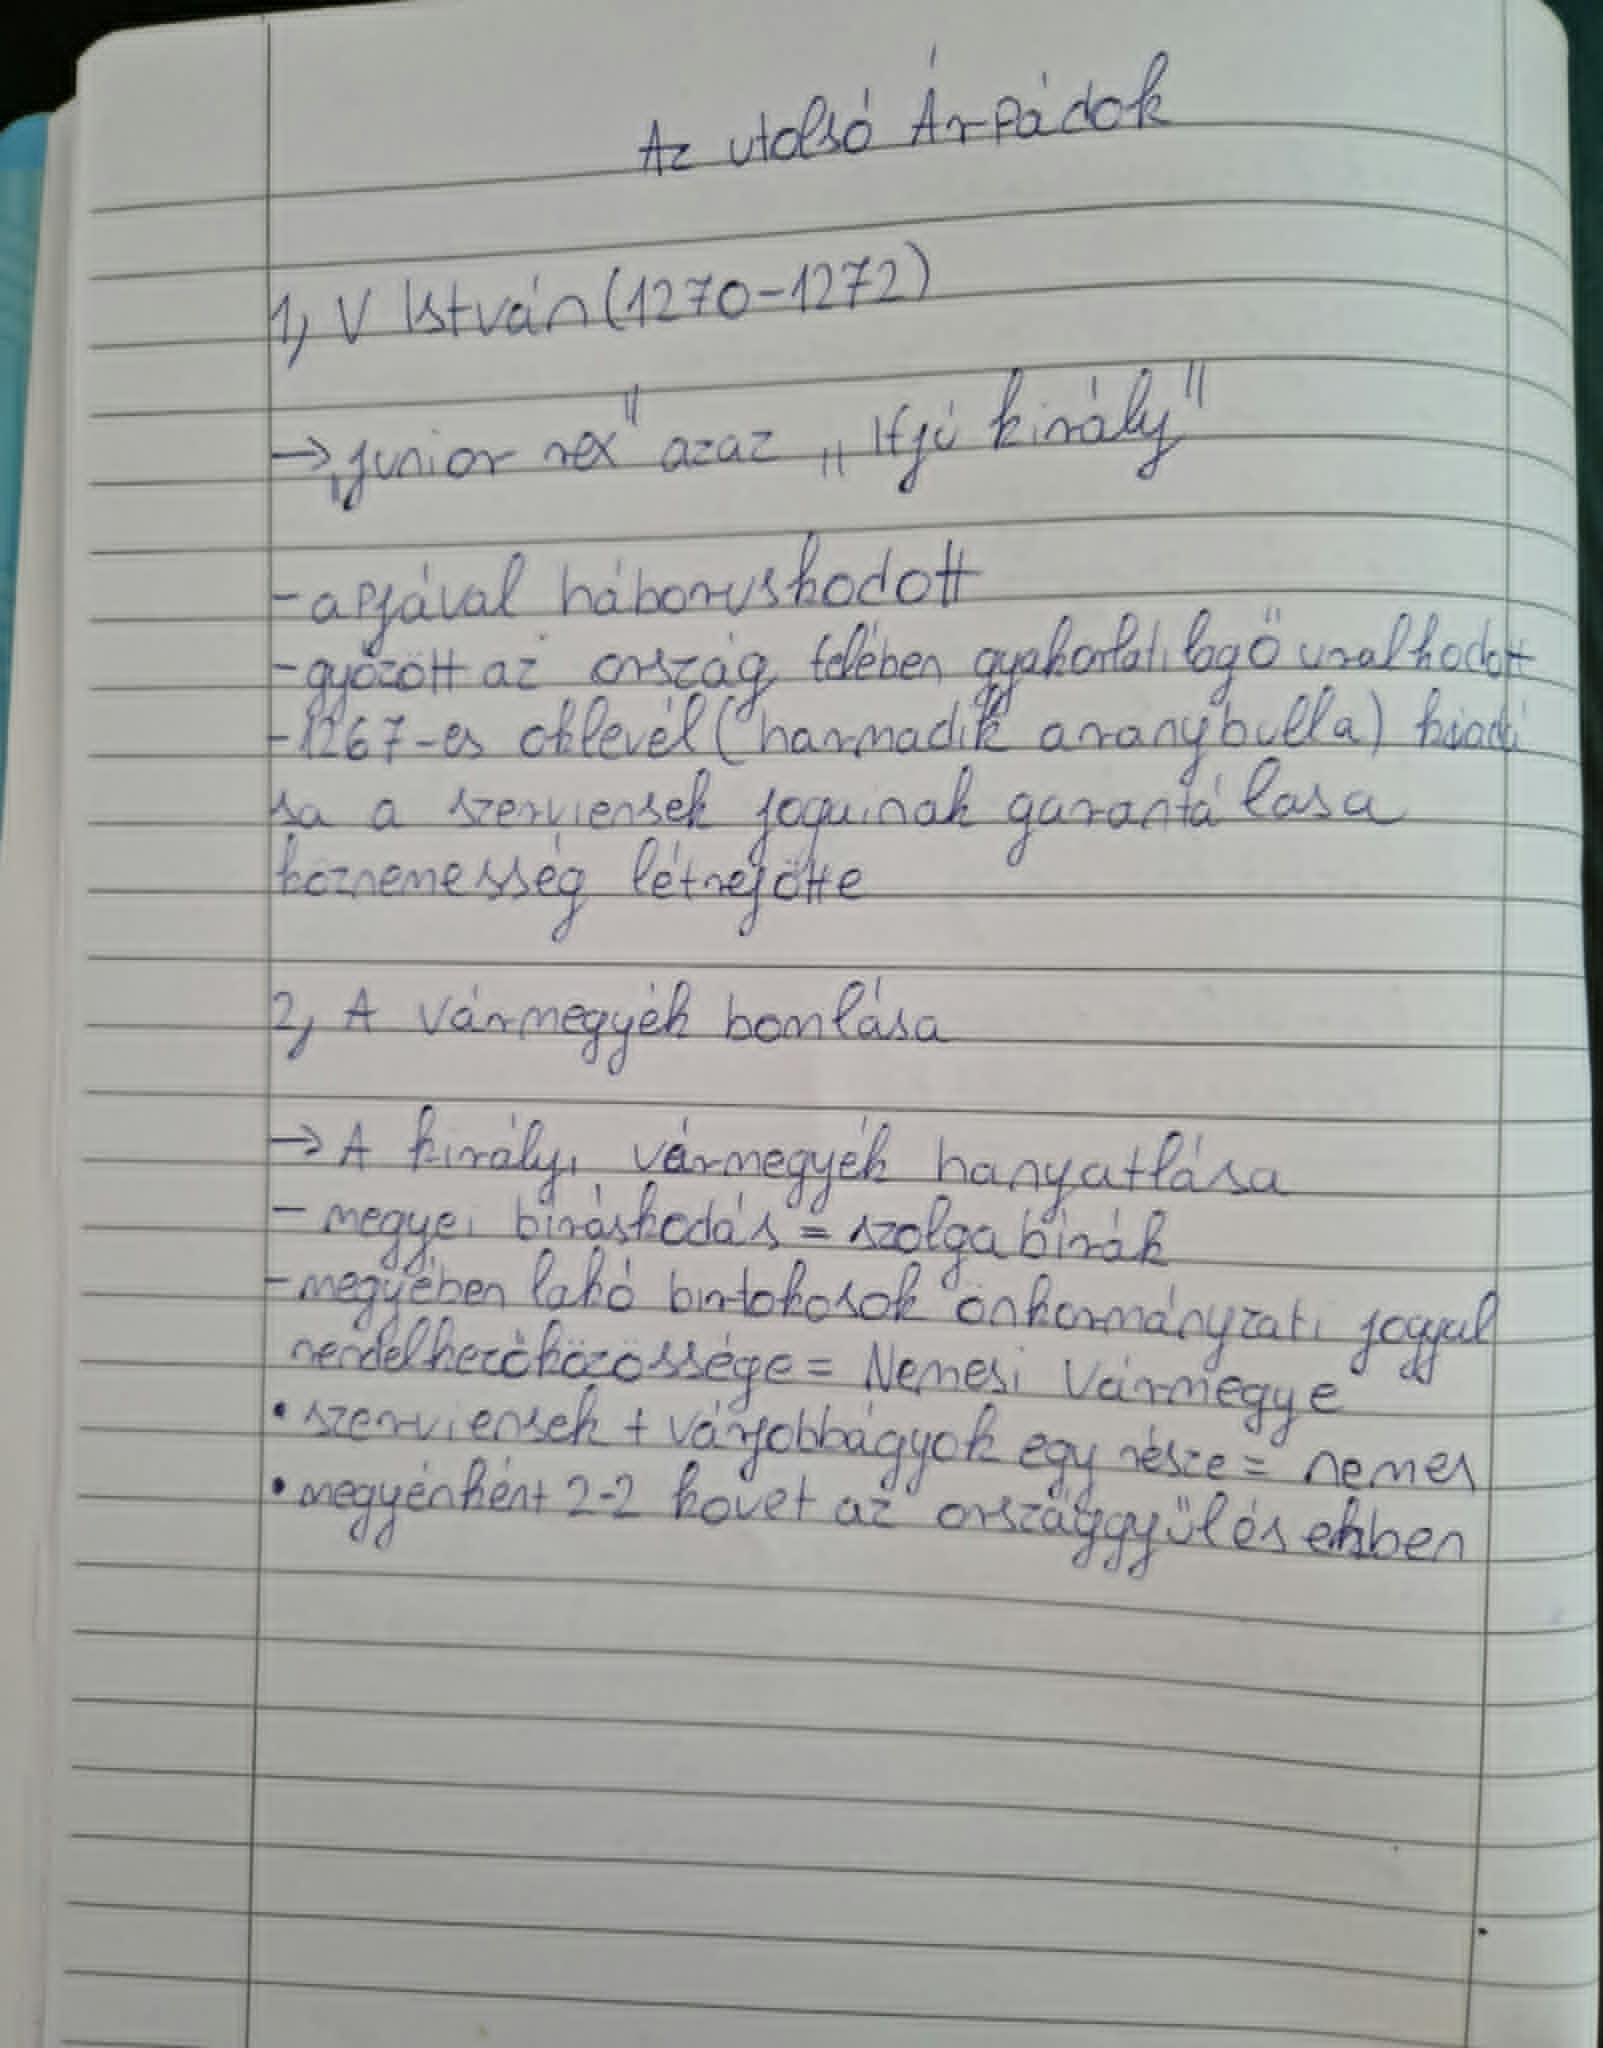 Az utolsó Árpádok
1, V István (1270-1272)
→ „junior rex" azaz „Ifjú király"
- apjával háboruskodott
- győzött az ország felében gyakorlatilag ő uralkodott
- 1267-es oklevél (harmadik aranybulla) kiadá
sa a szerviensek jogainak garantálása
köznemesség létrejötte
2, A vármegyék bomlása
→ A királyi vármegyék hanyatlása
- megyei bíráskodás = szolgabírák
- megyében lakó birtokosok önkormányzati joggal
rendelkező közössége = Nemesi Vármegye
• szerviensek + várjobbágyok egy része = nemes
• megyénként 2-2 követ az országgyűlésekben